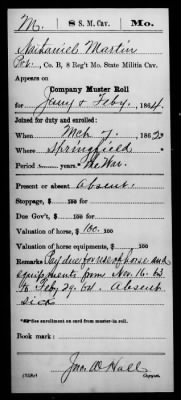 M. 8 S. M. Cav. Mo.
Nathaniel Martin
Pvt., Co. B, 8 Reg't Mo. State Militia Cav.
Appears on
Company Muster Roll
for Jany & Feby, 1864.
Joined for duty and enrolled:
When Mch 7, 1862
Where Springfield
Period years.
Present or absent Absent.
Stoppage, $ 100 for
Due Gov't, $ 100 for
Valuation of horse, $ 100.
Valuation of horse equipments, $ 100
Remarks Pay due for use of horse and
equipments from Nov. 16. 63
to Feby 29. 64. Absent
sick
*See enrollment on card from muster-in roll.
Book mark:
Jno. W. Hall
Copyist.